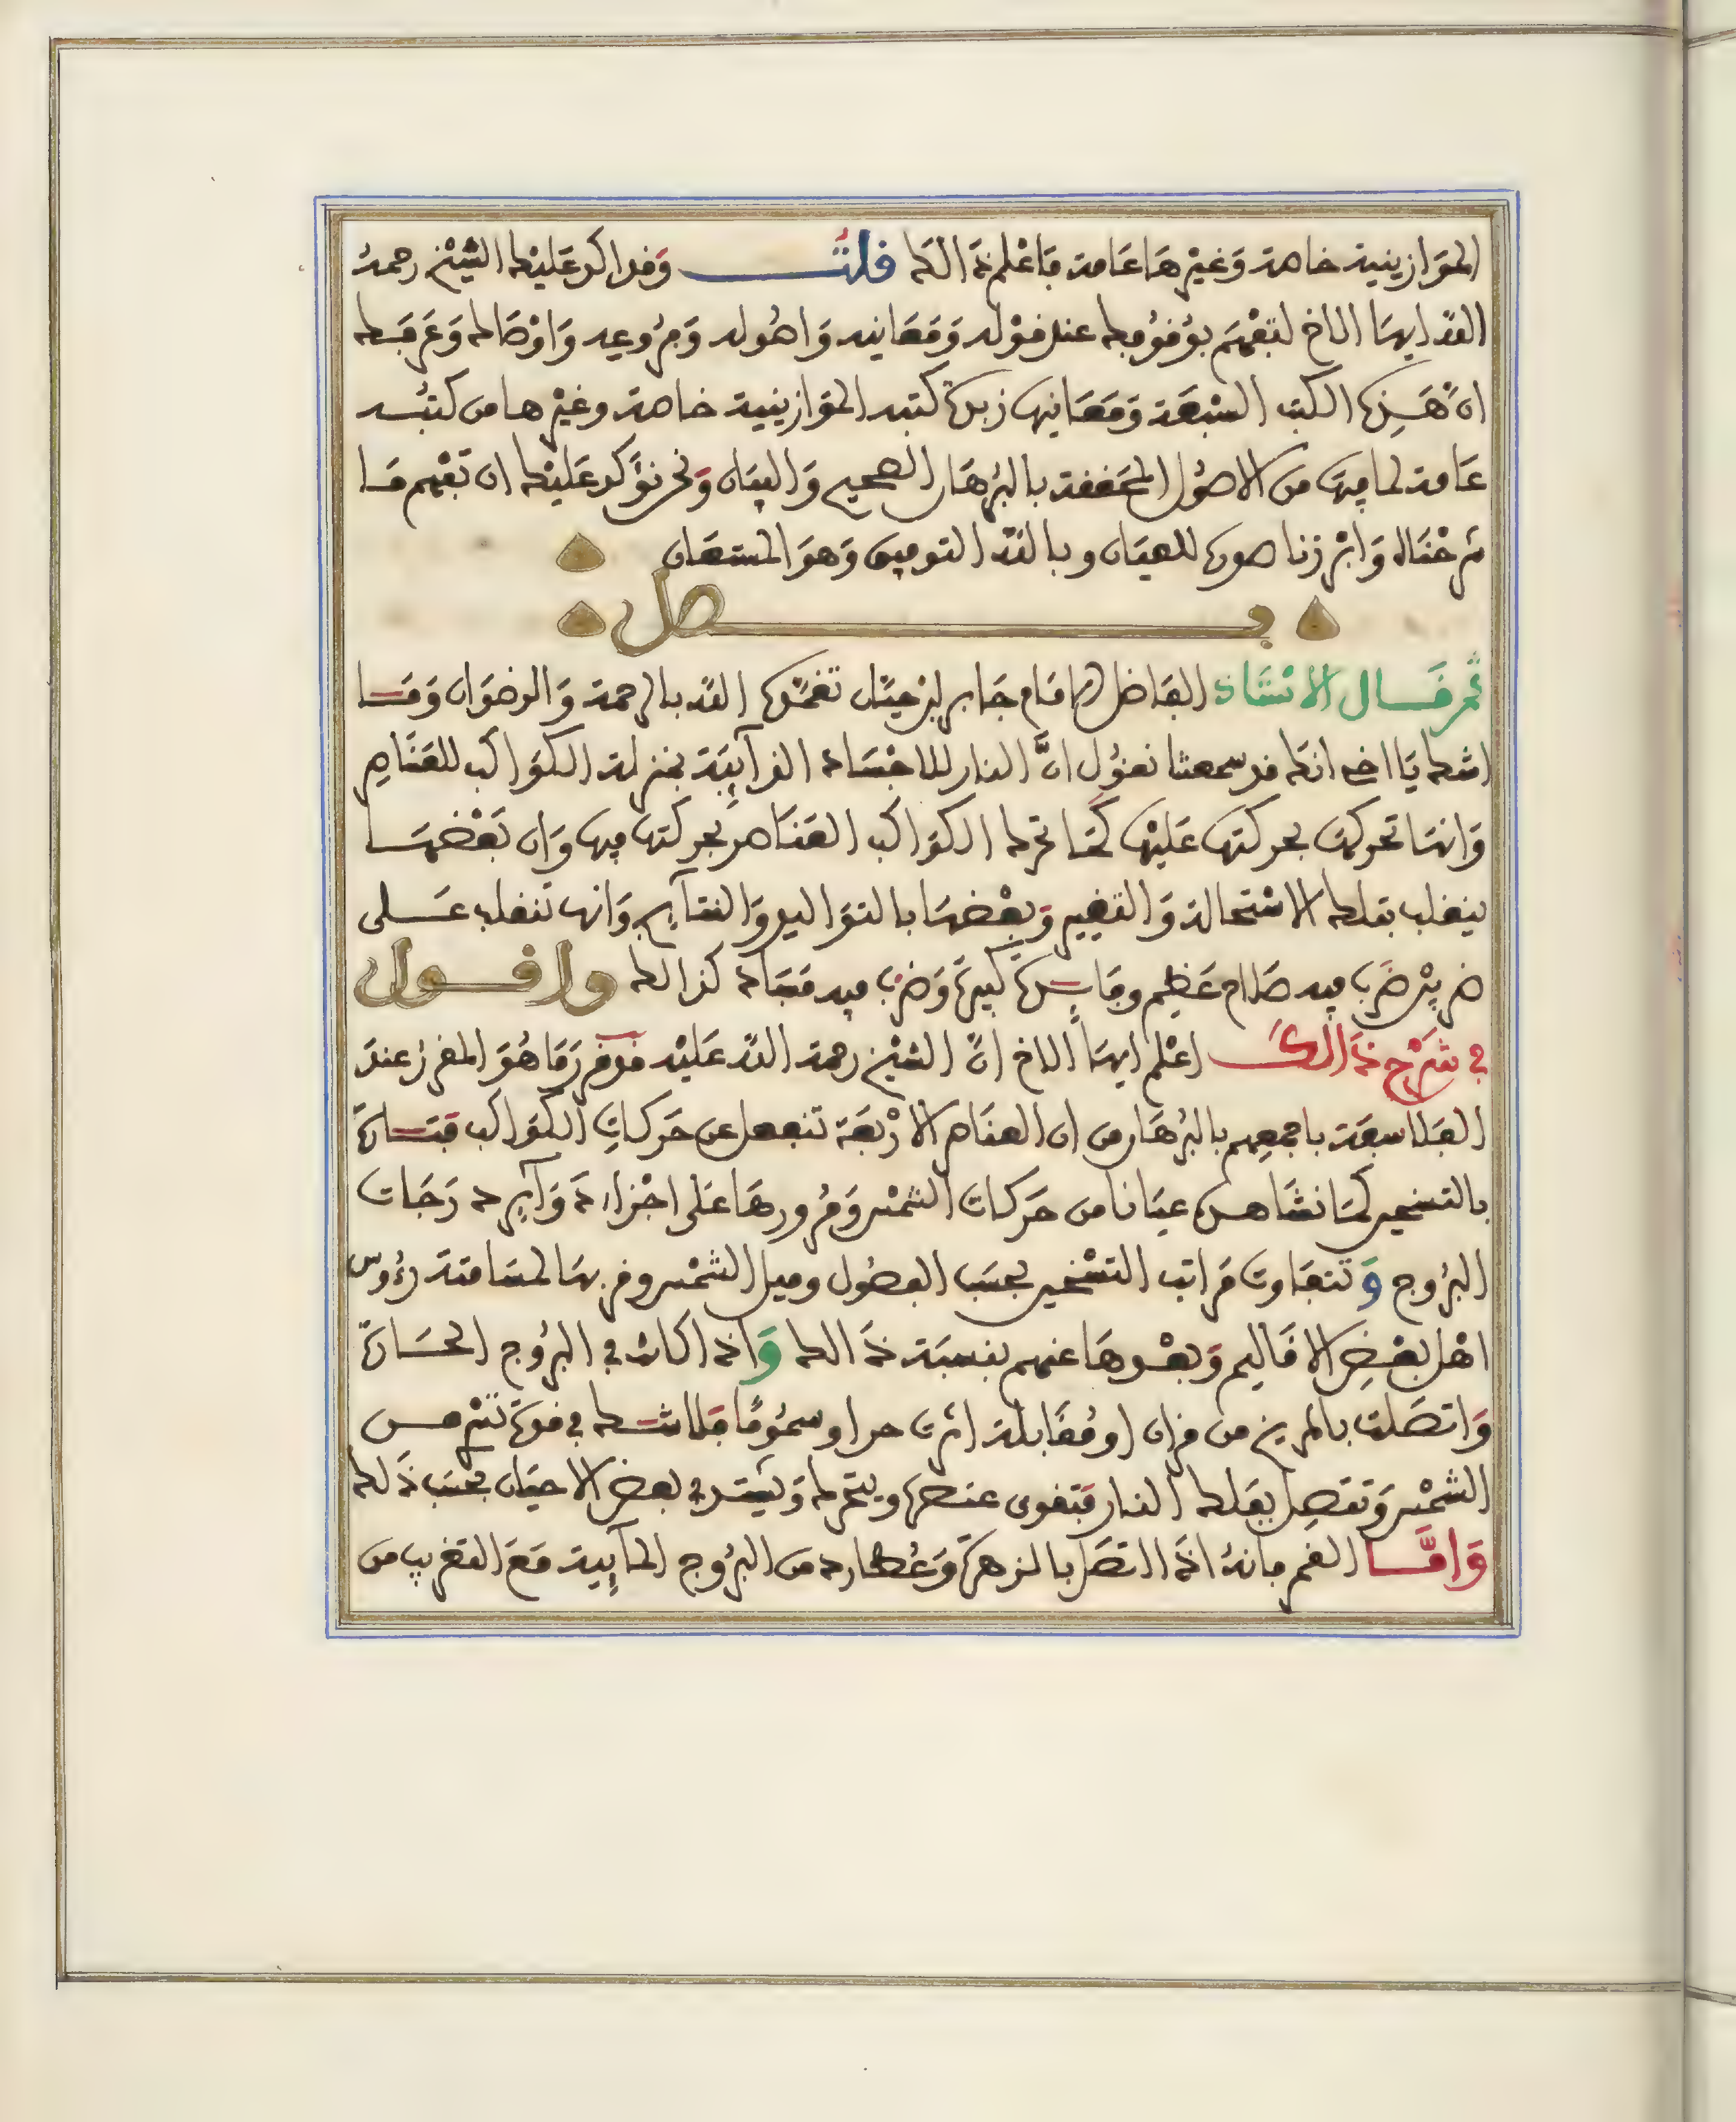 الموازينية خاصة وَغيْرهَا عَامة فَاعْلم ذَالك قلتُ وَقد اكد عَليْك الشيْخ رحمهُ
الله ايهَا الاخ لتفهَم بوُقوُفك عند قوْله وَمَعَانيه وَاصُوله وَفرُوعِه وَاوْصَاك وَعَرفَك
انّ هَذِه الكتب السّبعَة وَمَعَانيهَا زبدة كتبه الموَازينية خاصة وغيْرها من كتبُه
عَامة لما فيهَا من الاصُول المحَققة بالبُرهَان الصحيح وَالبيَان وَنحْن نؤَكد عَليْك ان تفْهم مَا
شرحْنَاه وَابْرزنا صورة للعيَان وبالله التوفيق وَهوَ المستعَان
فصل
ثم قَال الاسْتَاذ الفَاضل الامَام جَابر ابْن حيَّان تغمّدَه الله بالرحمة وَالرضوَان وَمَا
اشك يَا اخي انكَ قد سمعتنا نقوُل انَّ النار للاجْسَاد الذآيِبَة بمنزلة الكوَاكب للعَنَاصِر
وَانهَا تحركهَا بحركتهَا عَليْهَا كمَا تحرك الكوَاكب العَنَاصر بحركتهَا فيهَا وَان بَعْضهَا
ينقلب بتلك الاسْتحالة وَالتغيير وَبعْضهَا بالتوَاليد وَالنتآيج وَانها تنقلب عَلى
ضربيْن ضرَب فيه صَلاح عَظيم وفَايِدة كبيرة وَضرْب فيه فسَاد كذالك وَاقول
في شَرْح ذَالك اعْلم ايهَا الاخ انّ الشيْخ رحمة الله عَليْه قد قررَ مَا هُوَ المقررُ عندَ
الفَلاسِفَة باجمعِهم بالبُرهَان من ان العنَاصر الارْبعَة تنفعل عن حَركاتِ الكوَاكب فتَارة
بالتسخير كمَا نشَاهده عيَانا من حَركات الشمْس وَمُرورهَا عَلى اجْزاء دَوَآيِر دَرَجَات
البرُوج وَتتفَاوت مَراتب التسْخير بحسَب الفصُول وميل الشمْس وقربهَا لمسَامتة رؤوس
اهْل بعْض الاقَاليم وَبعْدهَا عنهم بنسبَة ذَالك وَاذا كانت في البرُوج الحَارة
وَاتصَلت بالمريخ من قران او مُقَابلة اثرت حرا وسمُومًا فلا شك في قوة تتم من
الشمْس وَتتصل بفلك النار فتقوى عنصرهَا ويتحرك وَيشتد في بعض الاحيَان بحسَب ذَلك
وَامَّا القمر فانهُ اذَا اتصَل بالزهرة وَعُطارد من البرُوج المآيِية مَعَ القرب من